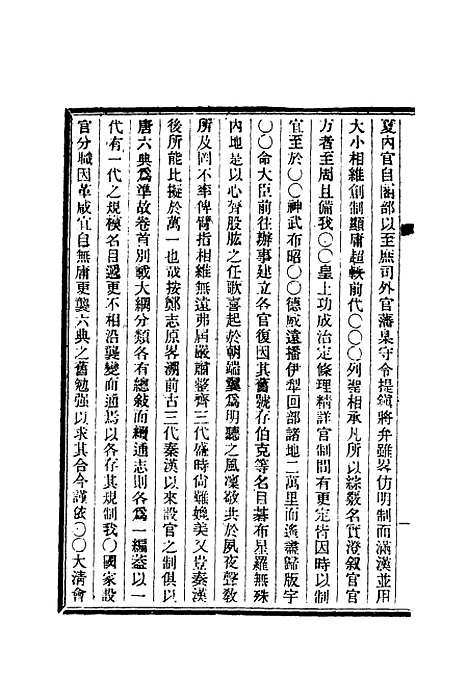 夏內官自閣部以至庶司外官藩臬守令提鎭將弁雖畧仿明制而滿漢並用
大小相維創制顯庸超軼前代〇〇〇列聖相承凡所以綜覈名實澄叙官官
方者至周且備我〇〇皇上功成治定條理精詳官制間有更定皆因時以制
宜至於〇〇神武布昭〇〇德威遠播伊犁回部諸地二萬里而遙盡歸版宇
〇〇命大臣前往辦事建立各官復因其舊號存伯克等名目碁布星羅無殊
內地是以心膂股肱之任歌喜起於朝端翼爲明聽之風凜敬共於夙夜聲敎
所及罔不率俾臂指相維無遠弗屆嚴肅整齊三代盛時尙難媲美又豈秦漢
後所能比擬於萬一也哉按鄭志原畧溯前古三代秦漢以來設官之制俱以
唐六典爲準故卷首別載大綱分類各有總敘而續通志則各爲一編蓋以一
代有一代之規模名目遞更不相沿襲變而通焉以各存其規制我〇國家設
官分職因革咸宜自無庸更襲六典之舊勉强以求其合今謹依〇〇大淸會